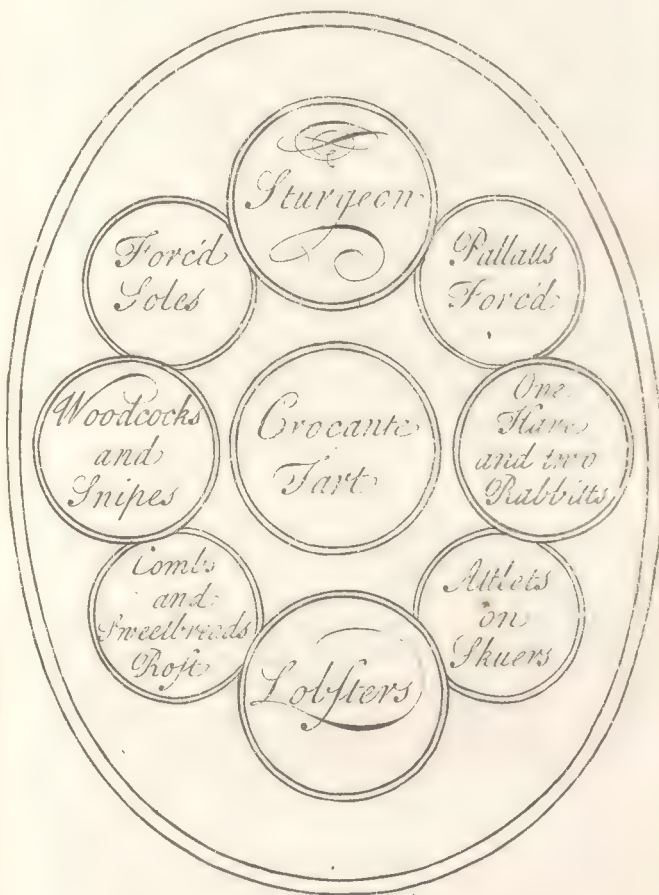 Sturgeon
Forc'd
Soles
Pallatts
Forc'd
Woodcocks
and
Snipes
Crocante
Tart
One
Hare
and two
Rabbitts
Combs
and
Sweetbreads
Roſt
Attlets
on
Skuers
Lobſters